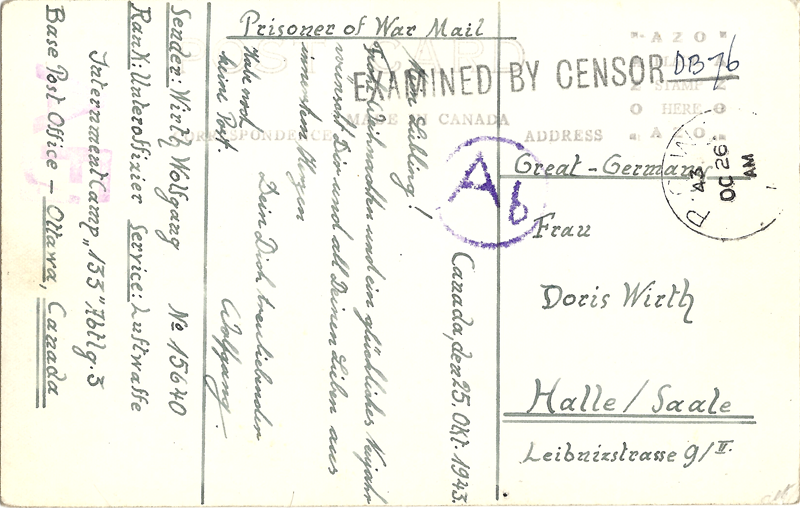 Prisoner of War Mail
POST CARD
EXAMINED BY CENSOR
DB/76
AZO
STAMP
HERE
AZO
MADE IN CANADA
CORRESPONDENCE
ADDRESS
P.O.W.
43
OC 26
AM
A6
Great-Germany
Frau
Doris Wirth
Halle/Saale
Leibnizstrasse 9/II.
Canada, den 25. Okt. 1943.
Mein Liebling!
Frohe Weihnachten und ein glückliches Neujahr
wünscht Dir und all Deinen Lieben aus
innerstem Herzen
Dein Dich treuliebender
Wolfgang.
Habe noch
keine Post
Sender: Wirth Wolfgang No 15640
Rank: Unteroffizier Service: Luftwaffe
Internment Camp „133" Abtlg. 3
Base Post Office – Ottawa, Canada